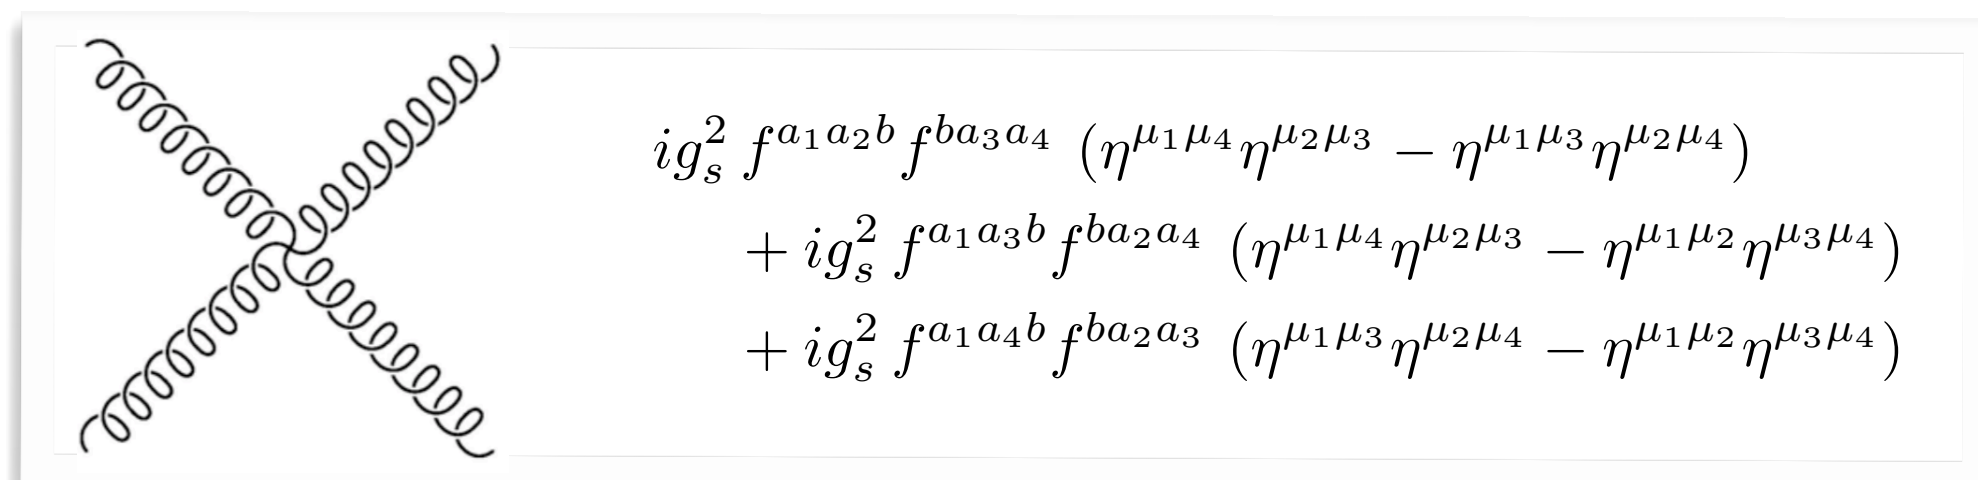 $i g_s^2 \, f^{a_1 a_2 b} f^{b a_3 a_4} \, (\eta^{\mu_1 \mu_4} \eta^{\mu_2 \mu_3} - \eta^{\mu_1 \mu_3} \eta^{\mu_2 \mu_4})$
$+ \, i g_s^2 \, f^{a_1 a_3 b} f^{b a_2 a_4} \, (\eta^{\mu_1 \mu_4} \eta^{\mu_2 \mu_3} - \eta^{\mu_1 \mu_2} \eta^{\mu_3 \mu_4})$
$+ \, i g_s^2 \, f^{a_1 a_4 b} f^{b a_2 a_3} \, (\eta^{\mu_1 \mu_3} \eta^{\mu_2 \mu_4} - \eta^{\mu_1 \mu_2} \eta^{\mu_3 \mu_4})$